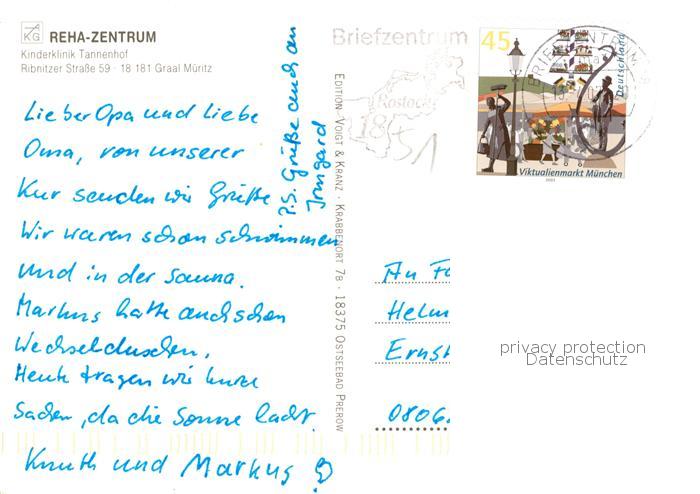 KG REHA-ZENTRUM
Kinderklinik Tannenhof
Ribnitzer Straße 59 · 18 181 Graal Müritz
Lieber Opa und liebe
Oma, von unserer
Kur senden wir Grüße
Wir waren schon schwimmen
und in der Sauna.
Markus hatte auch schon
Wechselduschen.
Heute tragen wir kurze
Sachen, da die Sonne lacht.
Knuth und Markus
P.S. Grüße auch an
Irmgard
EDITION · VOIGT & KRANZ · KRABBENORT 7B · 18375 OSTSEEBAD PREROW
Briefzentrum
Rostock
18
51
BRIEFZENTRUM
45
Deutschland
Viktualienmarkt München
2003
An Fa
Helm
Ernst
0806
privacy protection
Datenschutz